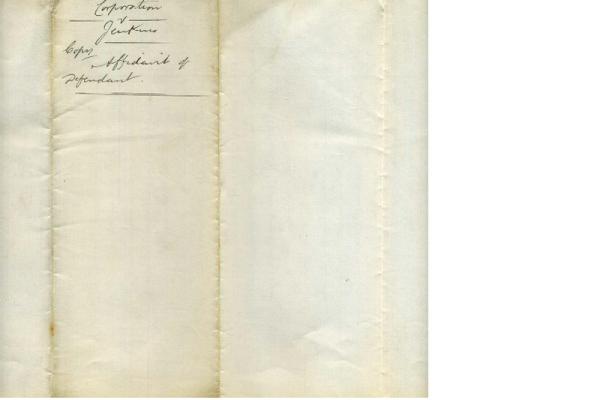 Corporation
v
Jenkins
Copy
Affidavit of
Defendant.